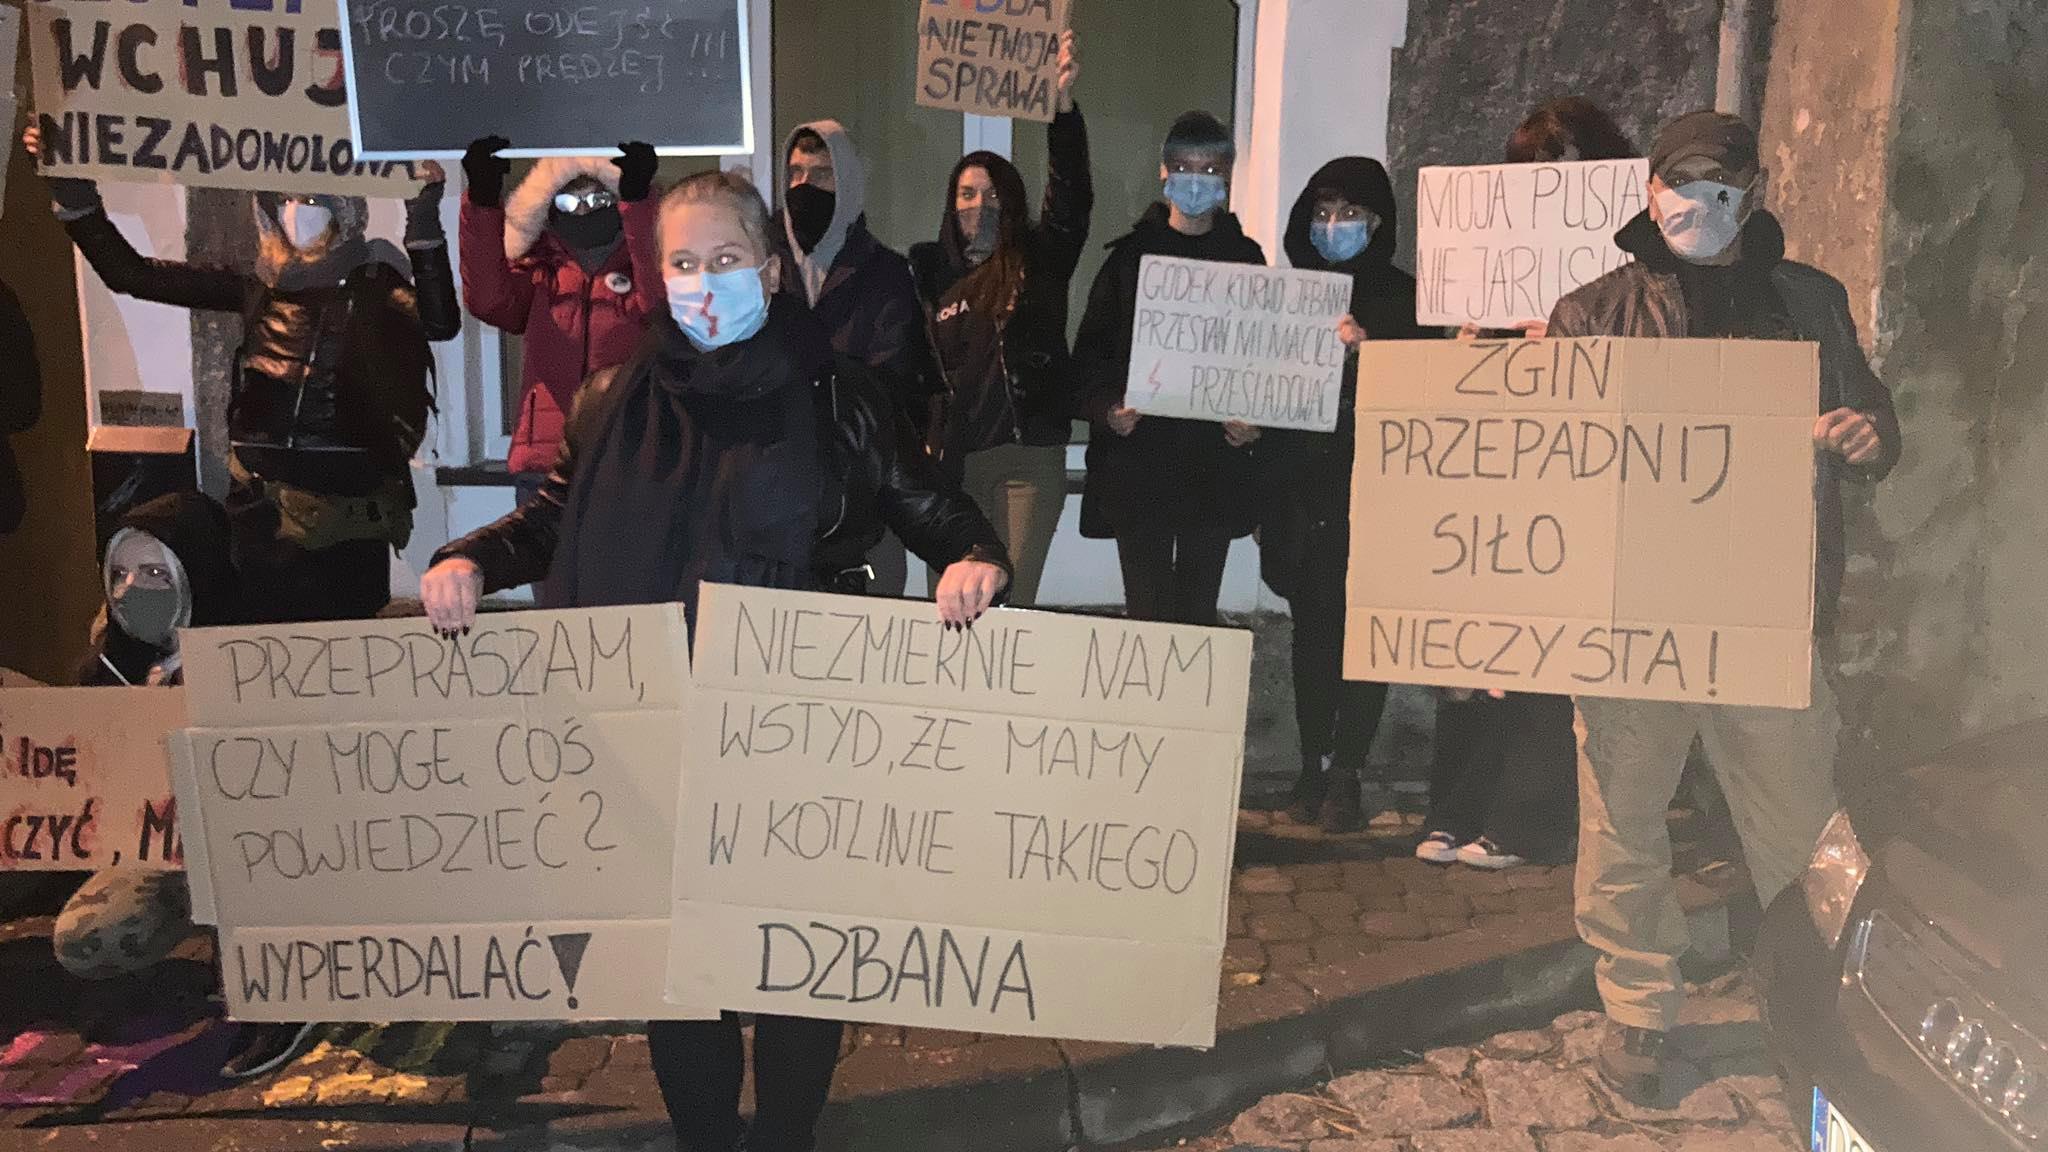 WCHUJ
NIEZADOWOLONA
PROSZĘ ODEJŚĆ
CZYM PRĘDZEJ !!!
NIE TWOJA
SPRAWA
GODEK KURWO JEBANA
PRZESTAŃ MI MACICE
PRZEŚLADOWAĆ
MOJA PUSIA
NIE JARUSIA
ZGIŃ
PRZEPADNIJ
SIŁO
NIECZYSTA!
IDĘ
PRZEPRASZAM,
CZY MOGĘ COŚ
POWIEDZIEĆ?
WYPIERDALAĆ!
NIEZMIERNIE NAM
WSTYD, ŻE MAMY
W KOTLINIE TAKIEGO
DZBANA